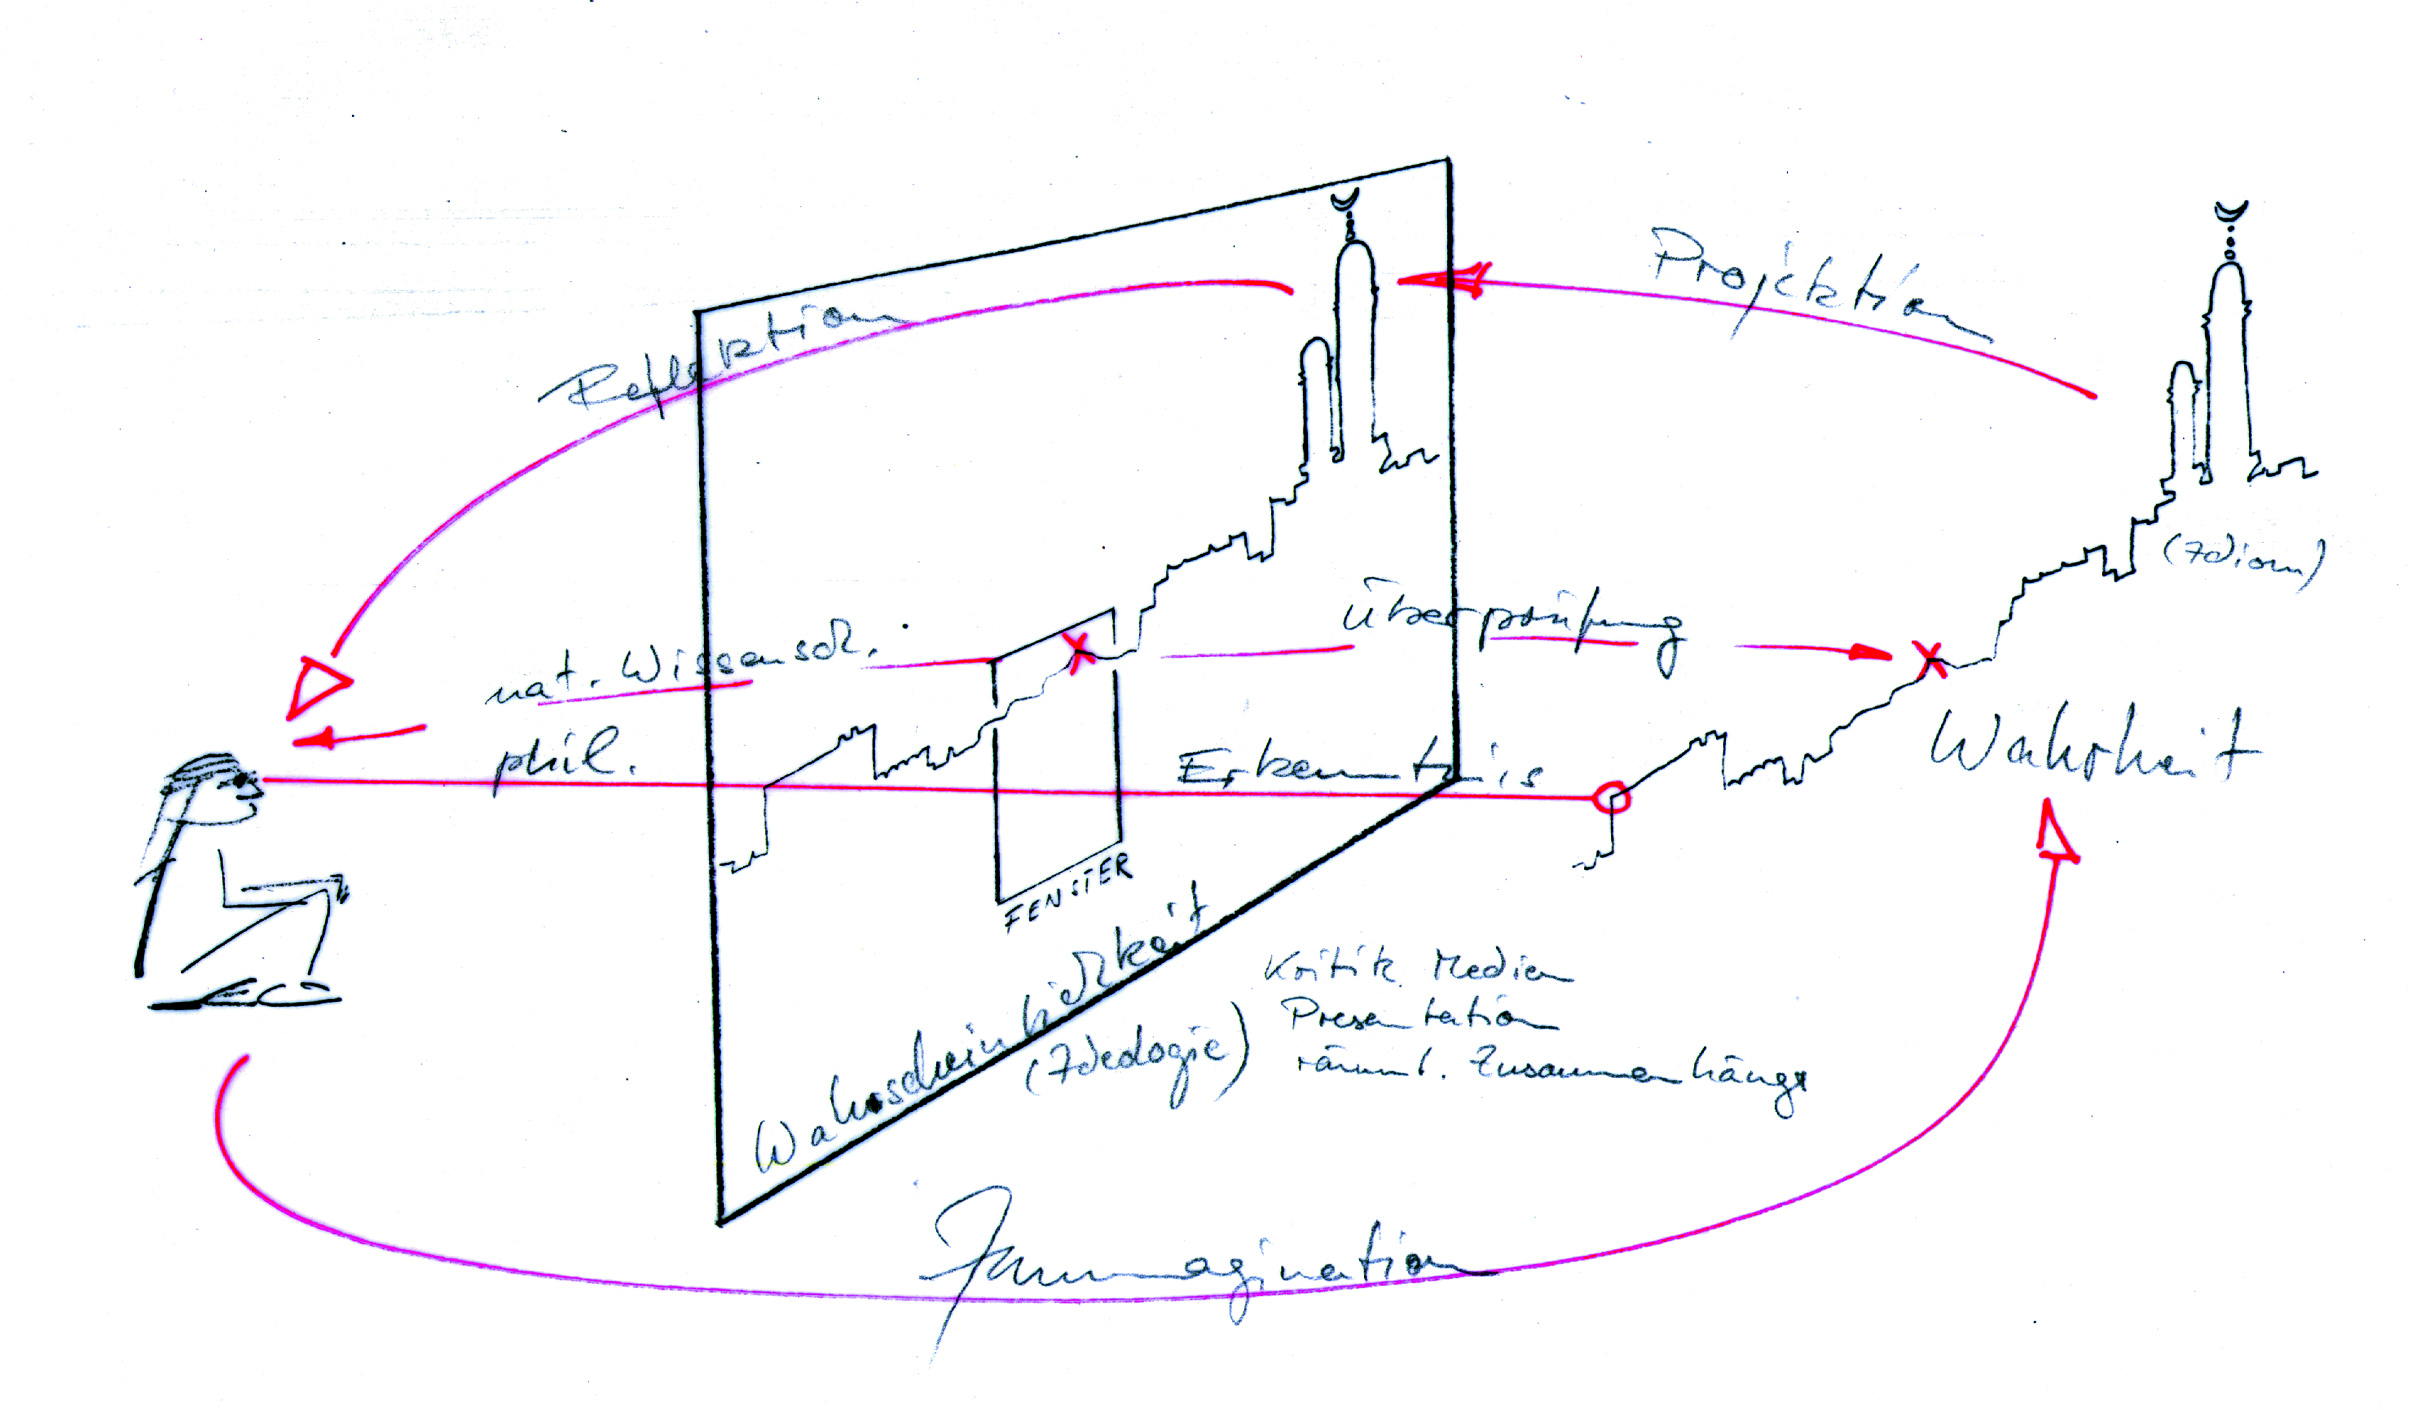 Projektion
Reflektion
(Idiom)
Überprüfung
nat. Wissensch.
Wahrheit
phil.
Erkenntnis
FENSTER
Wahrscheinlichkeit
(Ideologie)
Kritik Medien
Presentation
räuml. Zusammenhänge
Immagination